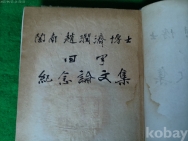 陶南 趙潤濟 博士
回甲
紀念論文集
kobay